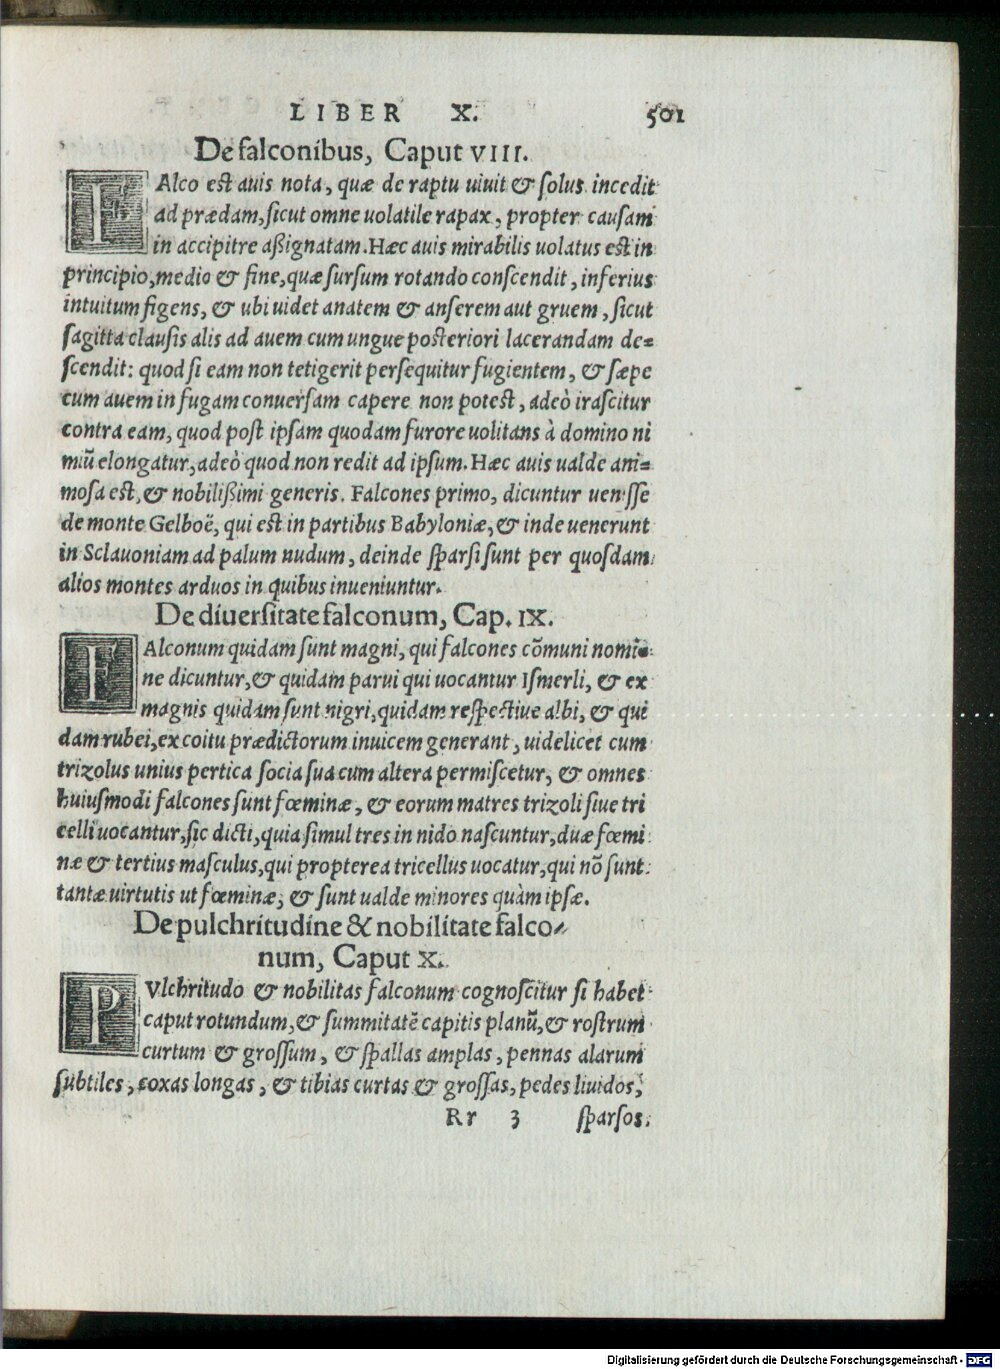 LIBER X. 501
De falconibus, Caput VIII.
FAlco est auis nota, quæ de raptu uiuit & solus incedit
ad prædam, sicut omne uolatile rapax, propter causam
in accipitre aßignatam. Hæc auis mirabilis uolatus est in
principio, medio & fine, quæ sursum rotando conscendit, inferius
intuitum figens, & ubi uidet anatem & anserem aut gruem, sicut
sagitta clausis alis ad auem cum ungue posteriori lacerandam de=
scendit: quod si eam non tetigerit persequitur fugientem, & sæpe
cum auem in fugam conuersam capere non potest, adeò irascitur
contra eam, quod post ipsam quodam furore uolitans à domino ni
miũ elongatur, adeò quod non redit ad ipsum. Hæc auis ualde ani=
mosa est, & nobilißimi generis. Falcones primo, dicuntur uenisse
de monte Gelboë, qui est in partibus Babyloniæ, & inde uenerunt
in Sclauoniam ad palum nudum, deinde sparsi sunt per quosdam
alios montes arduos in quibus inueniuntur.
De diuersitate falconum, Cap. IX.
FAlconum quidam sunt magni, qui falcones cõmuni nomi=
ne dicuntur, & quidam parui qui uocantur Ismerli, & ex
magnis quidam sunt nigri, quidam respectiue albi, & qui
dam rubei, ex coitu prædictorum inuicem generant, uidelicet cum
trizolus unius pertica socia sua cum altera permiscetur, & omnes
huiusmodi falcones sunt fœminæ, & eorum matres trizoli siue tri
celli uocantur, sic dicti, quia simul tres in nido nascuntur, duæ fœmi
næ & tertius masculus, qui propterea tricellus uocatur, qui nõ sunt
tantæ uirtutis ut fœminæ, & sunt ualde minores quàm ipsæ.
De pulchritudine & nobilitate falco-
num, Caput X.
PVlchritudo & nobilitas falconum cognoscitur si habet
caput rotundum, & summitatẽ capitis planũ, & rostrum
curtum & grossum, & spallas amplas, pennas alarum
subtiles, coxas longas, & tibias curtas & grossas, pedes liuidos,
Rr 3 sparsos.
Digitalisierung gefördert durch die Deutsche Forschungsgemeinschaft - DFG